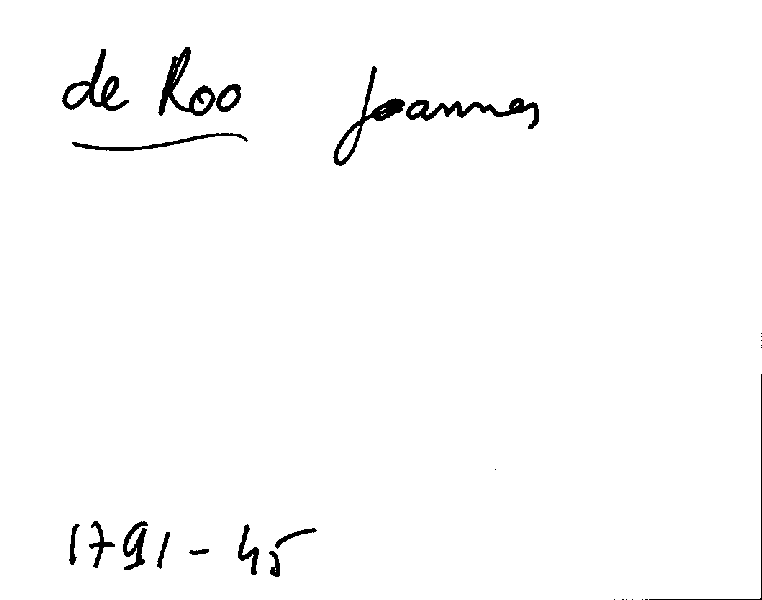 de Roo Joannes
1791 - 45